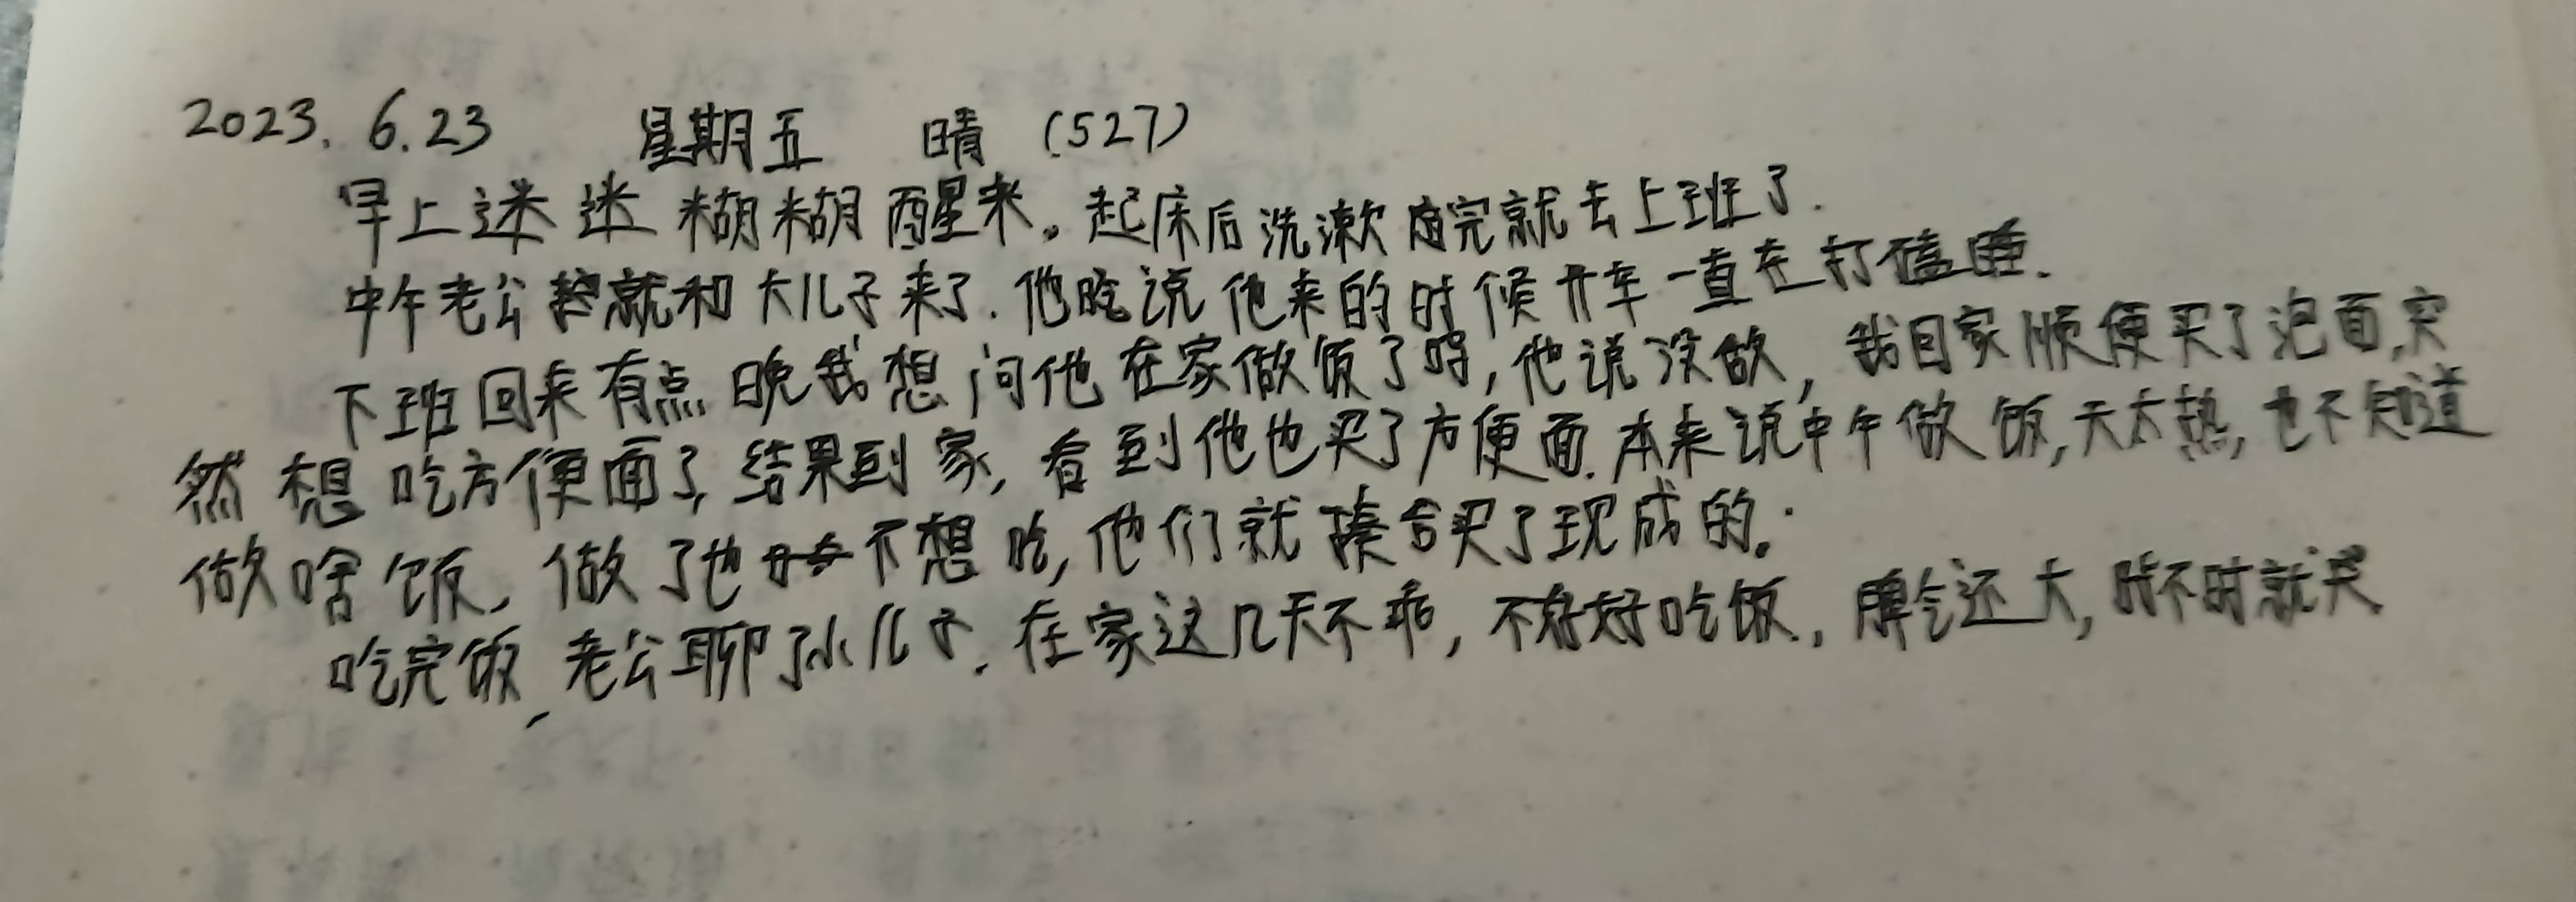 2023. 6.23 星期五 晴 (527)
早上迷迷糊糊醒来。起床后洗漱完就去上班了.
中午老公就和大儿子来了.他说他来的时候开车一直在打瞌睡.
下班回来有点晚我想问他在家做饭了吗,他说没做,我回家顺便买了泡面,突
然想吃方便面了,结果到家,看到他也买了方便面.本来说中午做饭,天太热,也不知道
做啥饭,做了也不想吃,他们就凑合买了现成的.
吃完饭,老公聊了小儿子.在家这几天不乖,不好好吃饭.,脾气还大,时不时就哭